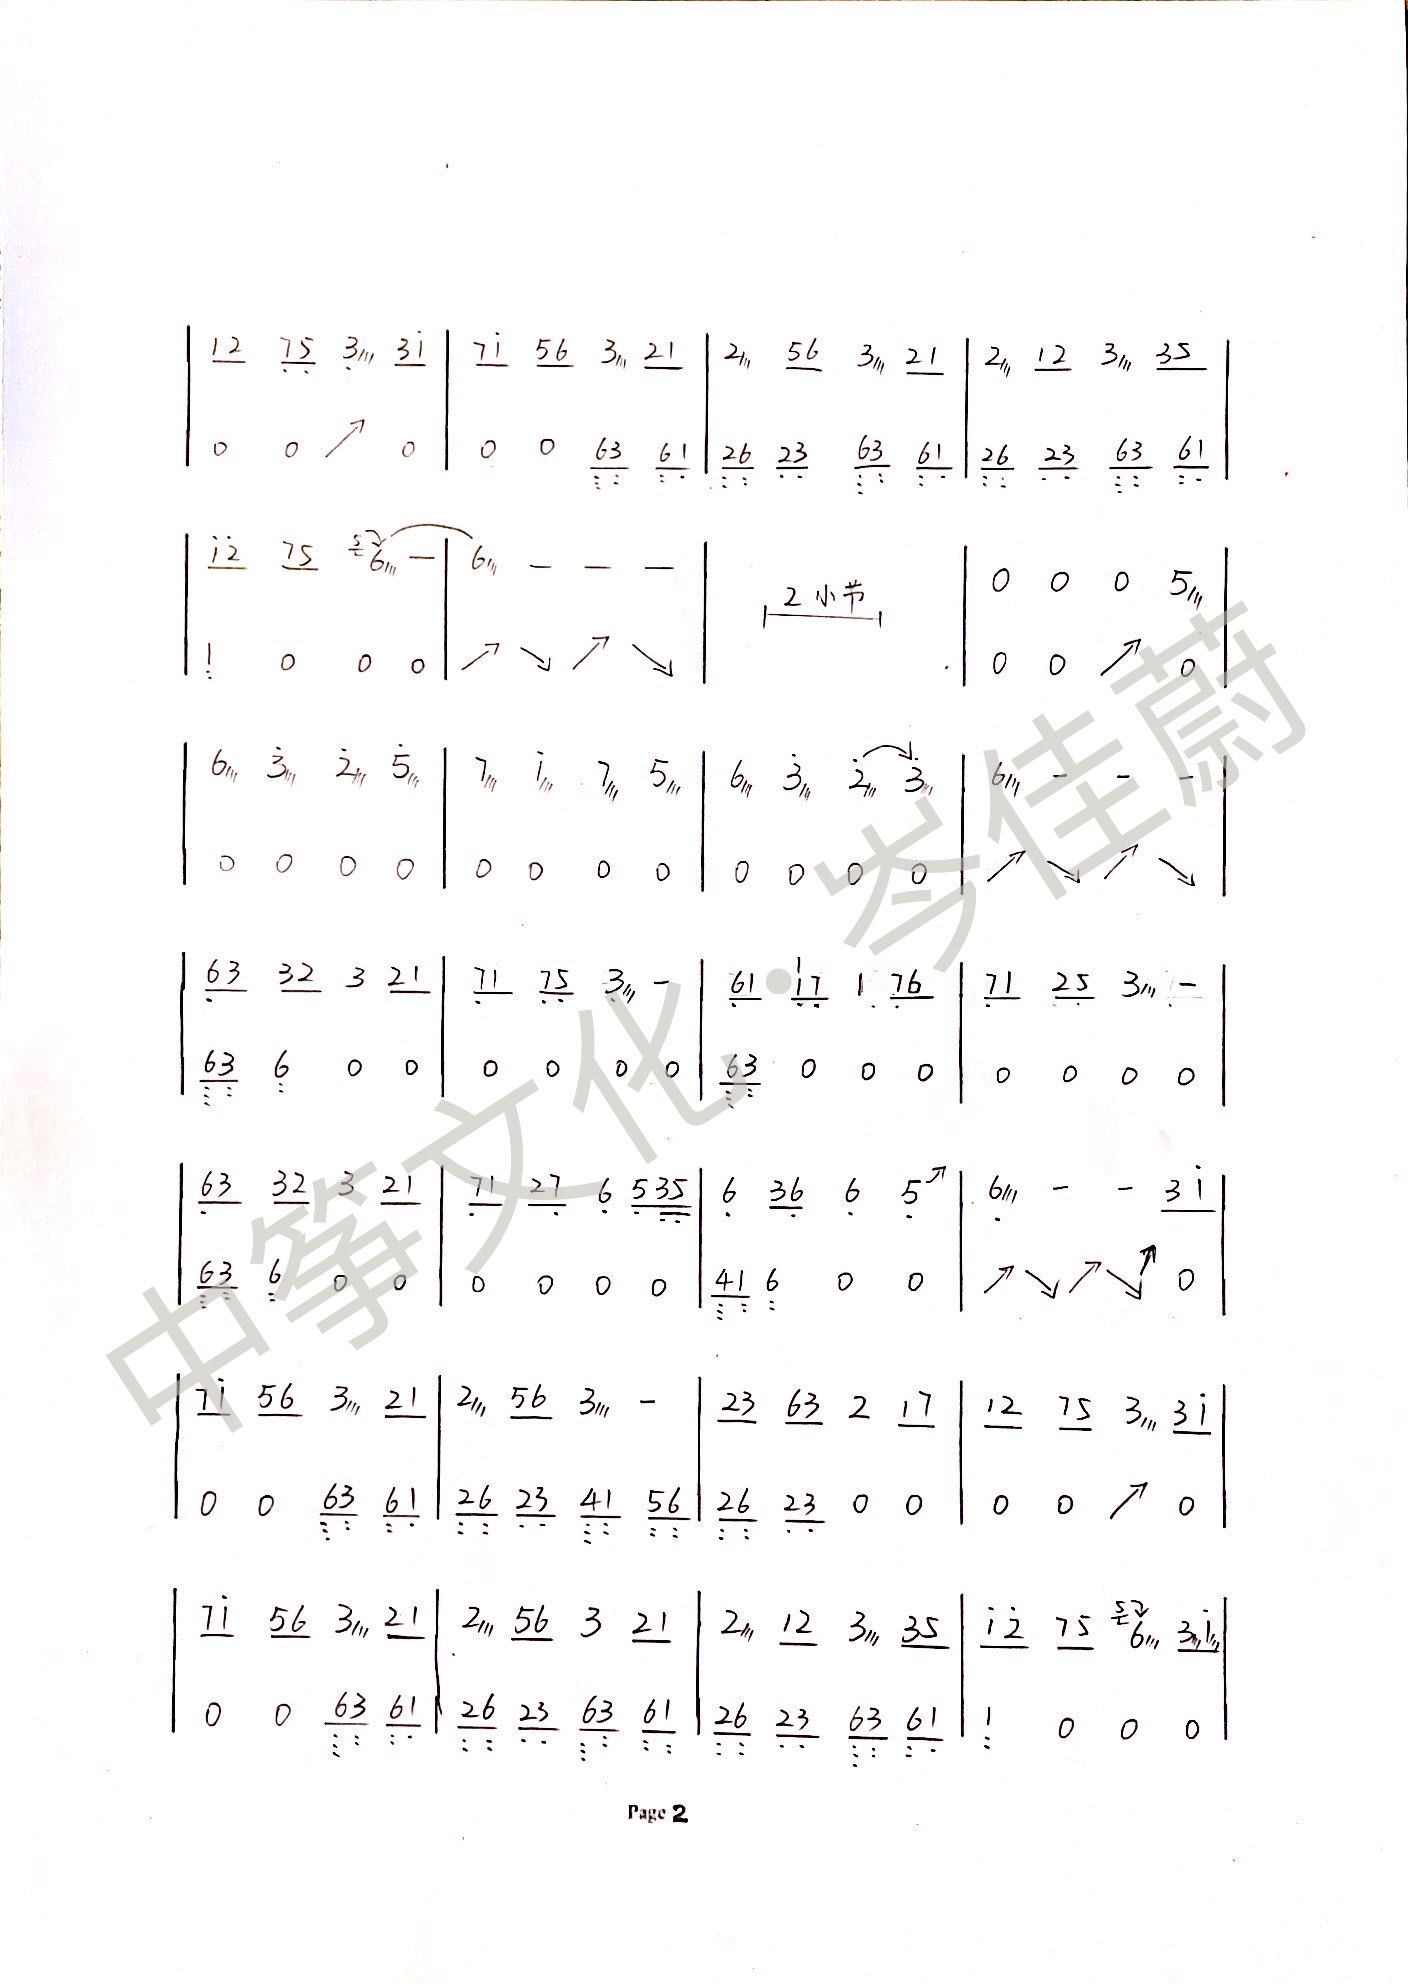 | 12 75 3/// 3i | 7i 56 3/// 21 | 2/// 56 3/// 21 | 2/// 12 3/// 35 |
| 0 0 ↗ 0 | 0 0 63 61 | 26 23 63 61 | 26 23 63 61 |
| i2 75 5 6/// — | 6/// — — — | 2 小节 | 0 0 0 5/// |
| 1 0 0 0 | ↗ ↘ ↗ ↘ | | 0 0 ↗ 0 |
| 6/// 3/// 2/// 5/// | 7/// i/// 7/// 5/// | 6/// 3/// 2/// 3/// | 6/// - - - |
| 0 0 0 0 | 0 0 0 0 | 0 0 0 0 | ↗ ↘ ↗ ↘ |
| 63 32 3 21 | 71 75 3/// - | 61 17 1 76 | 71 25 3/// - |
| 63 6 0 0 | 0 0 0 0 | 63 0 0 0 | 0 0 0 0 |
| 63 32 3 21 | 71 27 6 535 | 6 36 6 5↗ | 6/// - - 3i |
| 63 6 0 0 | 0 0 0 0 | 41 6 0 0 | ↗ ↘ ↗ ↘ ↗ 0 |
| 7i 56 3/// 21 | 2/// 56 3/// - | 23 63 2 17 | 12 75 3/// 3i |
| 0 0 63 61 | 26 23 41 56 | 26 23 0 0 | 0 0 ↗ 0 |
| 7i 56 3/// 21 | 2/// 56 3 21 | 2/// 12 3/// 35 | i2 75 5 6/// 3///i/// |
| 0 0 63 61 | 26 23 63 61 | 26 23 63 61 | 1 0 0 0 |
Page 2
中筝文化·岑佳蔚